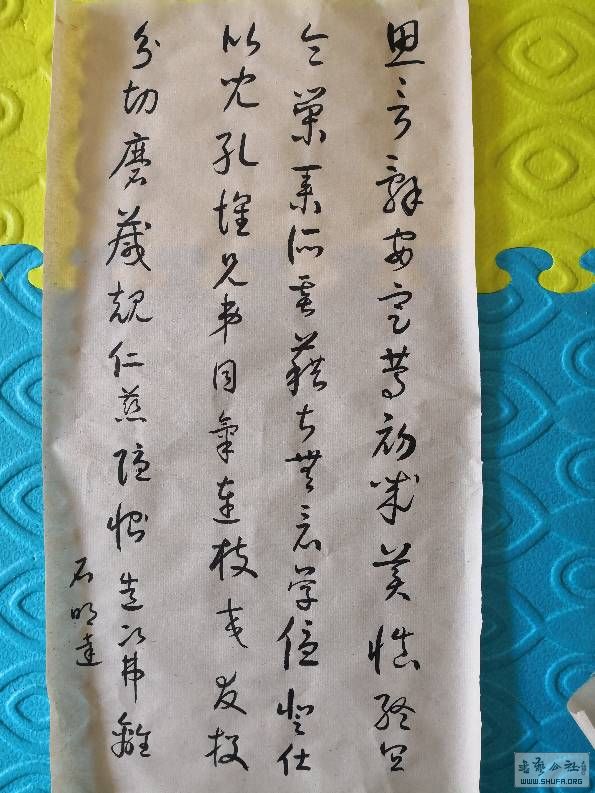 思言辭安定篤初誠美慎終宜
令榮業所基藉甚無竟學優登仕
比兒孔懷兄弟同氣連枝交友投
分切磨箴規仁慈隱惻造次弗離
石明達
书艺公社
WWW.SHUFA.ORG